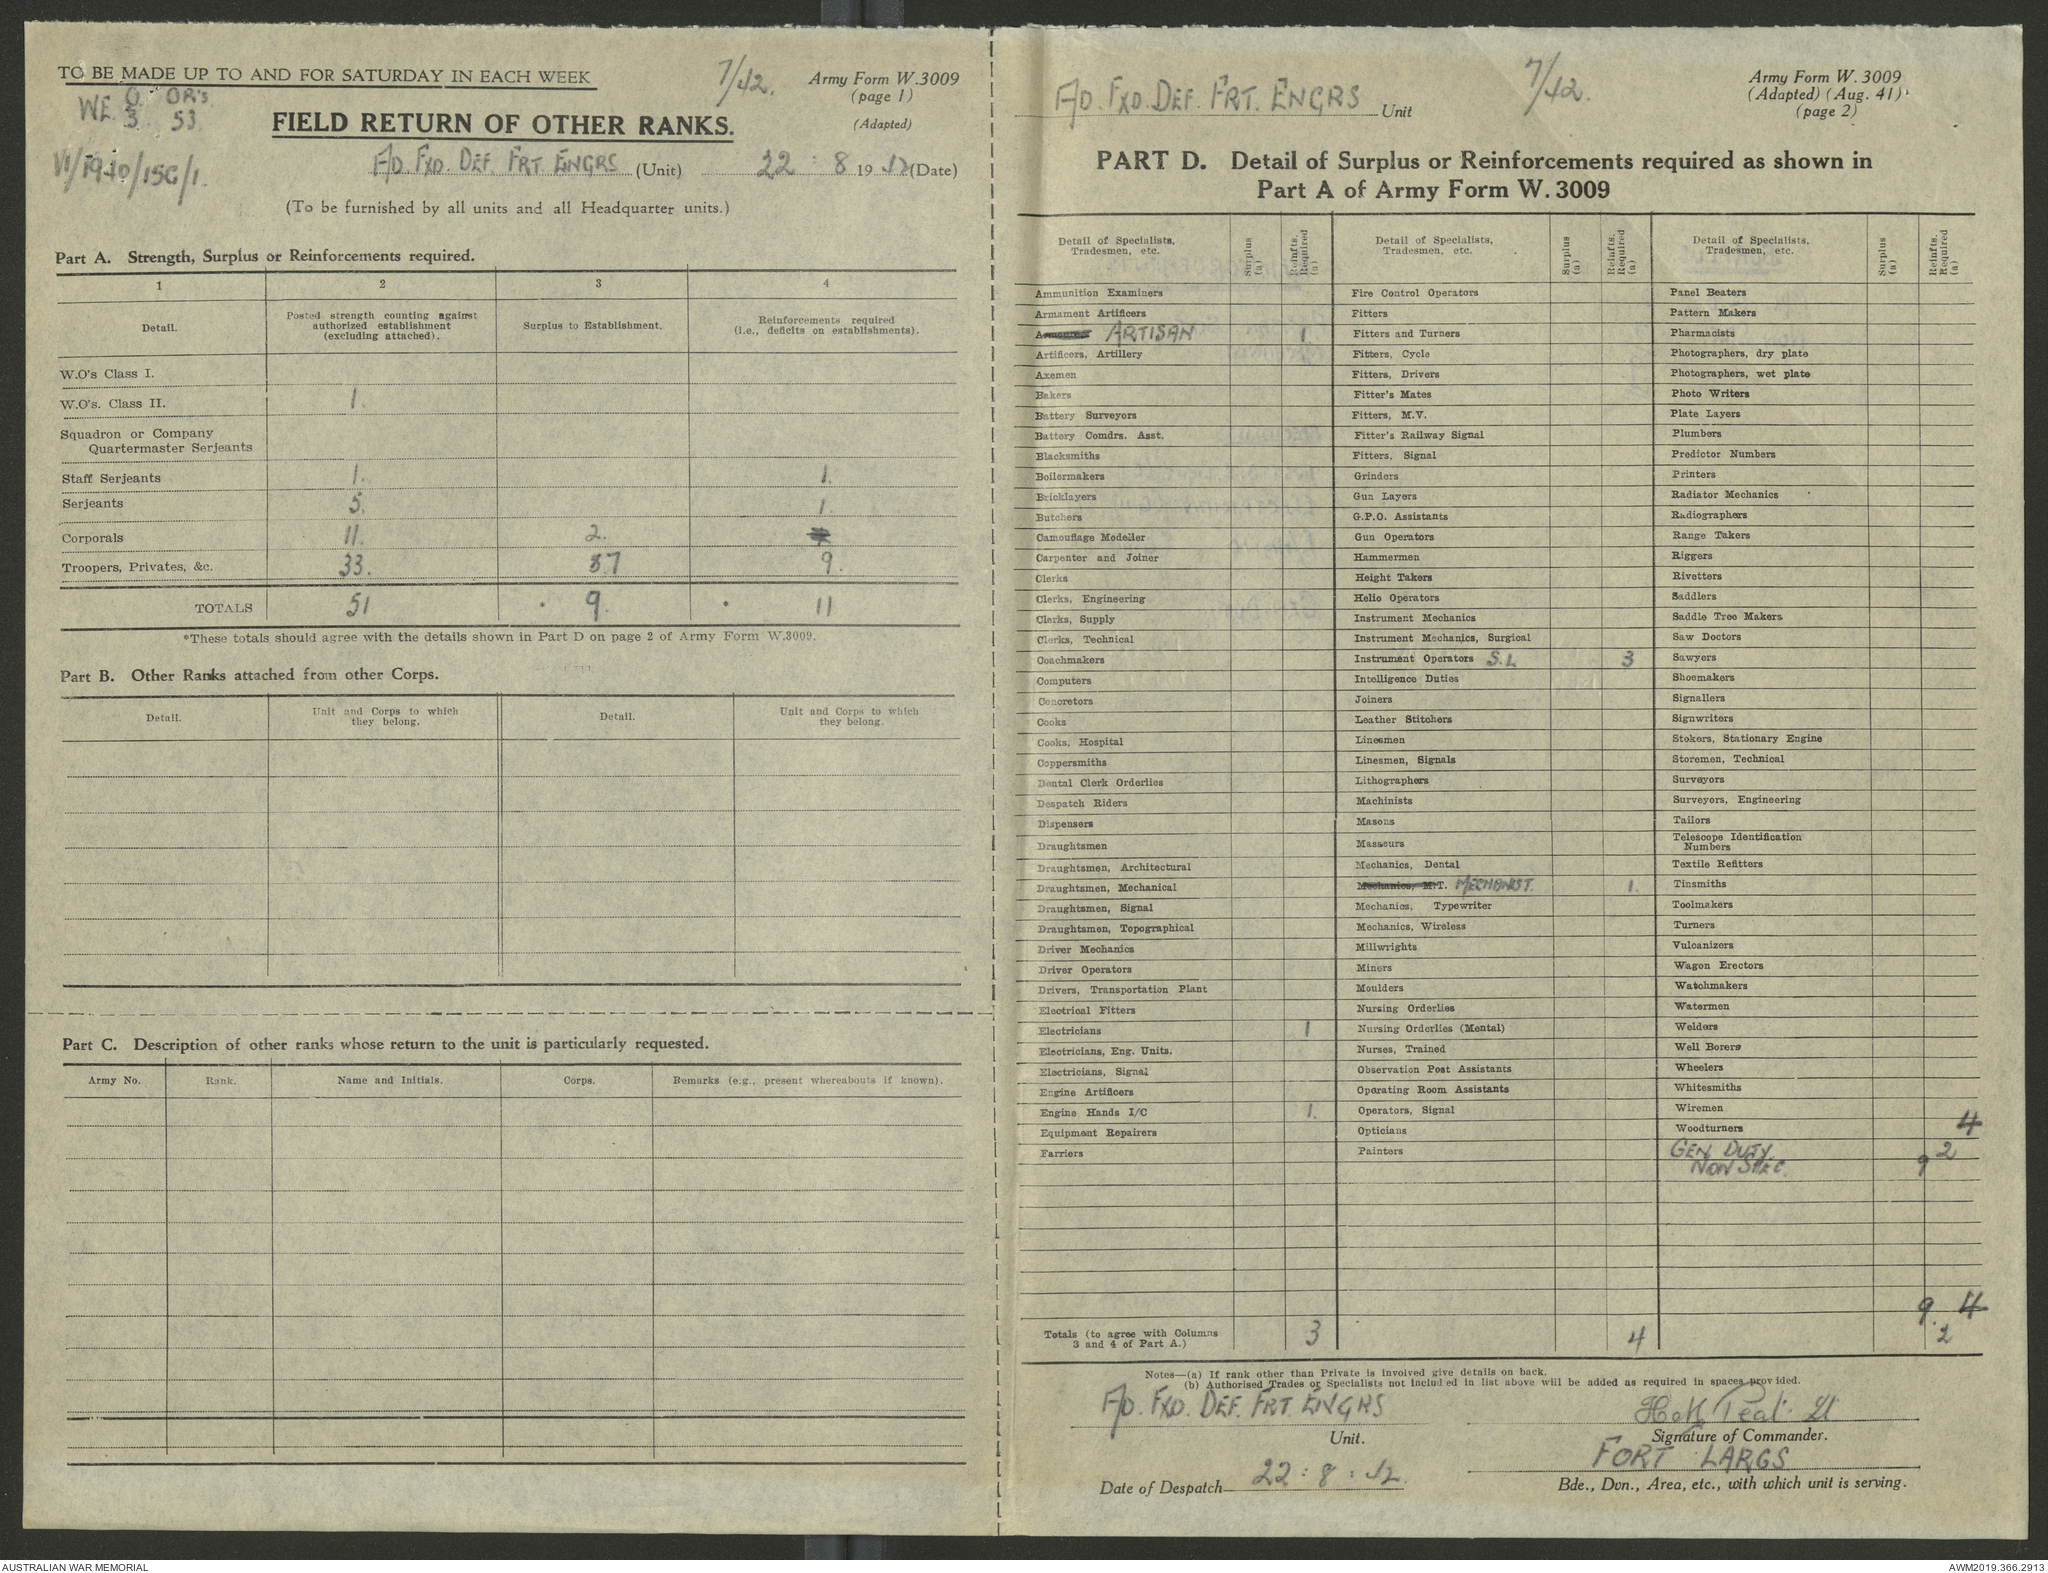 TO BE MADE UP TO AND FOR SATURDAY IN EACH WEEK
7/42.
Army Form W.3009
(page 1)
(Adapted)
WE O OR's
3 53
VI/1940/15G/1.
FIELD RETURN OF OTHER RANKS.
F/D. FXD. DEF. FRT. ENGRS (Unit) 22 : 8 1942 (Date)
(To be furnished by all units and all Headquarter units.)
Part A. Strength, Surplus or Reinforcements required.
1 2 3 4
Detail. Posted strength counting against authorized establishment (excluding attached). Surplus to Establishment. Reinforcements required (i.e., deficits on establishments).
W.O's Class I.
W.O's. Class II. 1.
Squadron or Company
Quartermaster Serjeants
Staff Serjeants 1. 1.
Serjeants 5. 1.
Corporals 11. 2.
Troopers, Privates, &c. 33. 7 9.
TOTALS 51 * 9. * 11
*These totals should agree with the details shown in Part D on page 2 of Army Form W.3009.
Part B. Other Ranks attached from other Corps.
Detail. Unit and Corps to which they belong. Detail. Unit and Corps to which they belong.
Part C. Description of other ranks whose return to the unit is particularly requested.
Army No. Rank. Name and Initials. Corps. Remarks (e.g., present whereabouts if known).
F/D. FXD. DEF. FRT. ENGRS Unit
7/42.
Army Form W. 3009
(Adapted) (Aug. 41)
(page 2)
PART D. Detail of Surplus or Reinforcements required as shown in
Part A of Army Form W. 3009
Detail of Specialists, Tradesmen, etc. Surplus (a) Reinfts. Required (a)
Ammunition Examiners
Armament Artificers
ARTISAN 1.
Artificers, Artillery
Axemen
Bakers
Battery Surveyors
Battery Comdrs. Asst.
Blacksmiths
Boilermakers
Bricklayers
Butchers
Camouflage Modeller
Carpenter and Joiner
Clerks
Clerks, Engineering
Clerks, Supply
Clerks, Technical
Coachmakers
Computers
Concretors
Cooks
Cooks, Hospital
Coppersmiths
Dental Clerk Orderlies
Despatch Riders
Dispensers
Draughtsmen
Draughtsmen, Architectural
Draughtsmen, Mechanical
Draughtsmen, Signal
Draughtsmen, Topographical
Driver Mechanics
Driver Operators
Drivers, Transportation Plant
Electrical Fitters
Electricians 1
Electricians, Eng. Units.
Electricians, Signal
Engine Artificers
Engine Hands I/C 1.
Equipment Repairers
Farriers
Totals (to agree with Columns
3 and 4 of Part A.) 3
Detail of Specialists, Tradesmen, etc. Surplus (a) Reinfts. Required (a)
Fire Control Operators
Fitters
Fitters and Turners
Fitters, Cycle
Fitters, Drivers
Fitter's Mates
Fitters, M.V.
Fitter's Railway Signal
Fitters, Signal
Grinders
Gun Layers
G.P.O. Assistants
Gun Operators
Hammermen
Height Takers
Helio Operators
Instrument Mechanics
Instrument Mechanics, Surgical
Instrument Operators S.L 3
Intelligence Duties
Joiners
Leather Stitchers
Linesmen
Linesmen, Signals
Lithographers
Machinists
Masons
Masseurs
Mechanics, Dental
Mechanics, M.T. MECHANIST. 1.
Mechanics, Typewriter
Mechanics, Wireless
Millwrights
Miners
Moulders
Nursing Orderlies
Nursing Orderlies (Mental)
Nurses, Trained
Observation Post Assistants
Operating Room Assistants
Operators, Signal
Opticians
Painters
4
Detail of Specialists, Tradesmen, etc. Surplus (a) Reinfts. Required (a)
Panel Beaters
Pattern Makers
Pharmacists
Photographers, dry plate
Photographers, wet plate
Photo Writers
Plate Layers
Plumbers
Predictor Numbers
Printers
Radiator Mechanics
Radiographers
Range Takers
Riggers
Rivetters
Saddlers
Saddle Tree Makers
Saw Doctors
Sawyers
Shoemakers
Signallers
Signwriters
Stokers, Stationary Engine
Storemen, Technical
Surveyors
Surveyors, Engineering
Tailors
Telescope Identification
Numbers
Textile Refitters
Tinsmiths
Toolmakers
Turners
Vulcanizers
Wagon Erectors
Watchmakers
Watermen
Welders
Well Borers
Wheelers
Whitesmiths
Wiremen
Woodturners 4
GEN DUTY 2
NON SPEC. 9
9. 4
2
Notes—(a) If rank other than Private is involved give details on back.
(b) Authorised Trades or Specialists not included in list above will be added as required in spaces provided.
F/D. FXD. DEF. FRT. ENGRS
Unit.
Peat Lt
Signature of Commander.
FORT LARGS
Date of Despatch 22 : 8 : 42.
Bde., Dvn., Area, etc., with which unit is serving.
AUSTRALIAN WAR MEMORIAL
AWM2019.366.2913